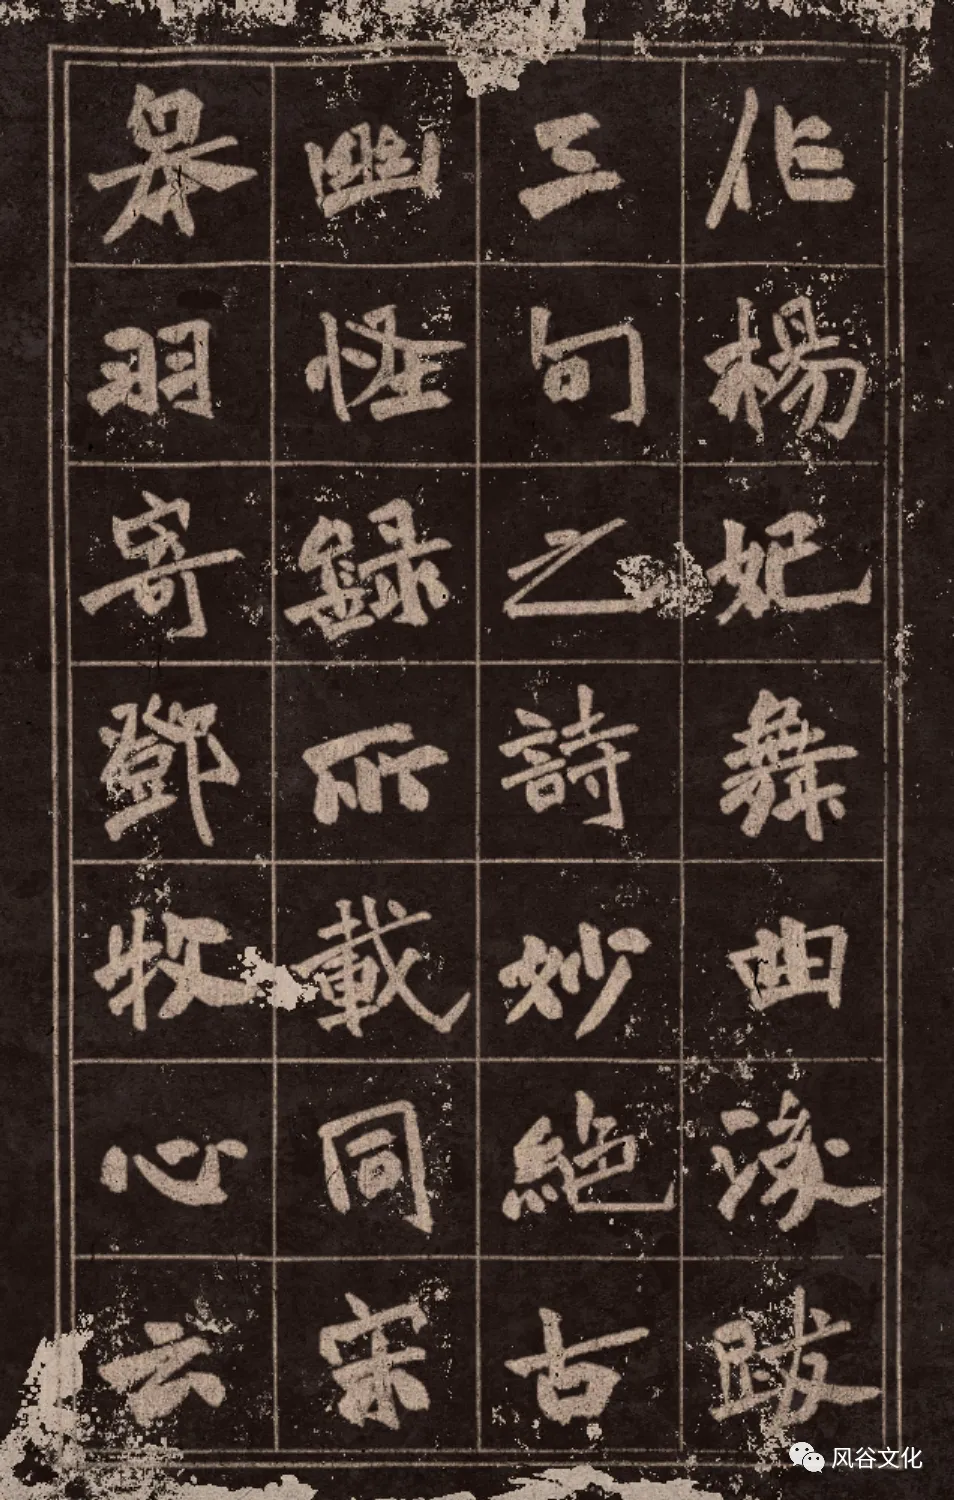 作楊妃舞曲後跋
三句之詩妙絕古
幽怪錄所載同宋
皋羽寄鄧牧心云
风谷文化